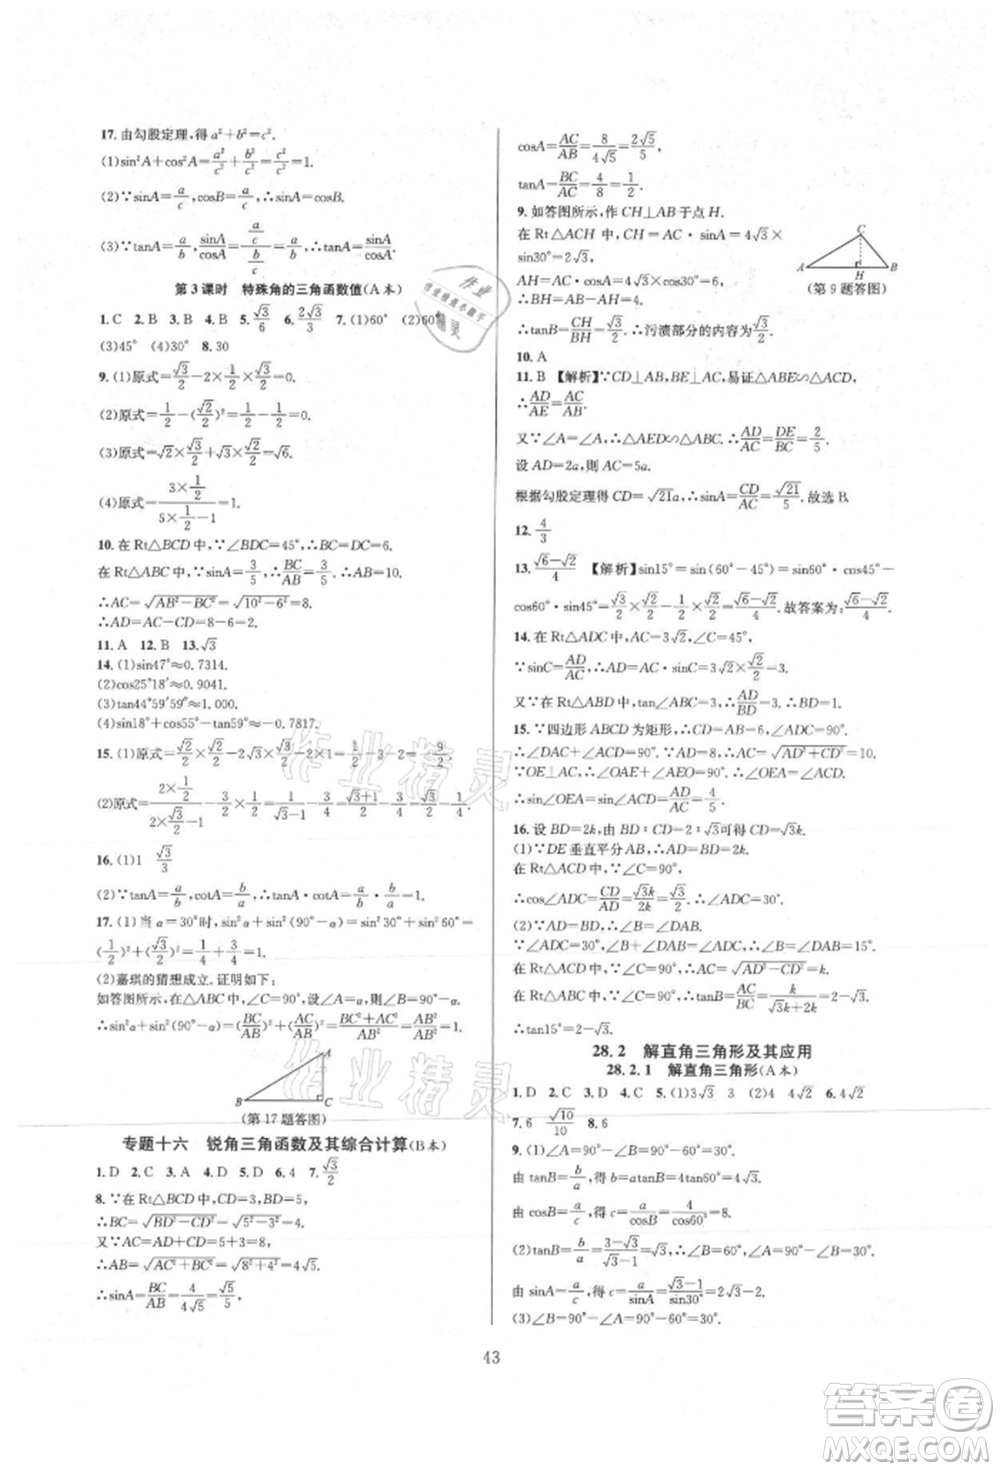 17. 由勾股定理,得 a²+b²=c².
(1)sin²A+cos²A=a²/c²+b²/c²=c²/c²=1.
(2)∵sinA=a/c, cosB=a/c, ∴sinA=cosB.
(3)∵tanA=a/b, sinA/cosA=(a/c)/(b/c)=a/b, ∴tanA=sinA/cosA.
第3课时 特殊角的三角函数值(A本)
1. C 2. B 3. B 4. B 5. √3/6 6. 2√3/3 7. (1)60° (2)60°
(3)45° (4)30° 8. 30
9. (1)原式=√3/2-2×√3/2×1/2=0.
(2)原式=1/2-(√2/2)²=1/2-1/2=0.
(3)原式=√2×√3/2+√3×√2/2=√6.
(4)原式=(3×1/2)/(5×1/2-1)=1.
10. 在 Rt△BCD 中,∵∠BDC=45°,∴BC=DC=6.
在 Rt△ABC 中,∵sinA=3/5=BC/AB=3/5,∴AB=10.
∴AC=√(AB²-BC²)=√(10²-6²)=8.
∴AD=AC-CD=8-6=2.
11. A 12. B 13. √3
14. (1)sin47°≈0.7314.
(2)cos25°18′≈0.9041.
(3)tan44°59′59″≈1.000.
(4)sin18°+cos55°-tan59°≈-0.7817.
15. (1)原式=√2/2×√2/2-2√3×√3/2-2×1=1/2-3-2=-9/2.
16. (1)1 √3/3
(2)∵tanA=a/b, cotA=b/a, ∴tanA·cotA=a/b·b/a=1.
17. (1)当 α=30°时,sin²α+sin²(90°-α)=sin²30°+sin²60°=
(1/2)²+(√3/2)²=1/4+3/4=1.
(2)嘉琪的猜想成立. 证明如下:
如答图所示,在△ABC 中,∠C=90°,设∠A=α,则∠B=90°-α.
∴sin²α+sin²(90°-α)=(BC/AB)²+(AC/AB)²=(BC²+AC²)/AB²=AB²/AB²=1.
A
B C
(第17题答图)
专题十六 锐角三角函数及其综合计算(B本)
1. D 2. C 3. A 4. D 5. D 6. 4 7. √3/2
8. ∵在 Rt△BCD 中,CD=3,BD=5,
∴BC=√(BD²-CD²)=√(5²-3²)=4.
又∵AC=AD+CD=8,
∴AB=√(AC²+BC²)=√(8²+4²)=4√5.
∴sinA=BC/AB=4/(4√5)=√5/5,
cosA=AC/AB=8/(4√5)=2√5/5,
tanA=BC/AC=4/8=1/2.
9. 如答图所示,作 CH⊥AB 于点 H.
在 Rt△ACH 中,CH=AC·sinA=4√3×
sin30°=2√3.
AH=AC·cosA=4√3×cos30°=6.
∴BH=AB-AH=2.
∴tanB=CH/BH=√3. ∴污渍部分的内容为√3/2.
C
A H B
(第9题答图)
10. A
11. B 【解析】∵CD⊥AB,BE⊥AC,易证△ABE∽△ACD,
∴AD/AE=AC/AB.
又∵∠A=∠A,∴△AED∽△ABC. ∴AD/AC=DE/BC=2/5.
设 AD=2a,则 AC=5a.
根据勾股定理得 CD=√21a,∴sinA=CD/AC=√21/5. 故选 B.
12. 4/3
13. (√6-√2)/4 【解析】sin15°=sin(60°-45°)=sin60°·cos45°-
cos60°·sin45°=√3/2·√2/2-1/2×√2/2=(√6-√2)/4. 故答案为:(√6-√2)/4.
14. 在 Rt△ADC 中,AC=3√2,∠C=45°,
∵sinC=AD/AC,∴AD=AC·sinC=3√2×√2/2=3.
又∵在 Rt△ABD 中,tanB=3,∴AD/BD=3. ∴BD=1.
15. ∵四边形 ABCD 为矩形,∴CD=AB=6,∠ADC=90°.
∴∠DAC+∠ACD=90°,AC=√(AD²+CD²)=10.
∵OE⊥AC,∴∠OAE+∠AEO=90°.∴∠AEO=∠ACD.
∴sin∠OEA=sin∠ACD=AD/AC=4/5.
16. 设 BD=2k,由 BD∶CD=2∶√3可得 CD=√3k.
(1)∵DE 垂直平分 AB,∴AD=BD=2k.
在 Rt△ACD 中,
∴cos∠ADC=CD/AD=√3k/2k=√3/2,∴∠ADC=30°.
(2)∵AD=BD,∴∠B=∠DAB.
∵∠ADC=30°,∠B+∠DAB=∠ADC,∴∠B=15°.
在 Rt△ACD 中,∠C=90°,∴AC=√(AD²-CD²)=k.
∴在 Rt△ABC 中,∠C=90°,∴tanB=AC/BC=k/(√3k+2k)=2-√3.
∴tan15°=2-√3.
28.2 解直角三角形及其应用
28.2.1 解直角三角形(A本)
1. D 2. C 3. D 4. C 5. (1)3√3 (2)4 (3)4√2 6. 4√2
7. 6 8. √10/10
9. (1)∠A=90°-∠B=90°-60°=30°.
由 tanB=b/a,得 b=atanB=4tan60°=4√3.
由 cosB=a/c,得 c=a/cosB=4/cos60°=8.
由 sinA=a/c,得 c=a/sinA=(√3-1)/sin30°=2√3-2.
(3)∠B=90°-∠A=90°-60°=30°.
43
作业精灵
作业精灵
答案圈
MXQE.COM